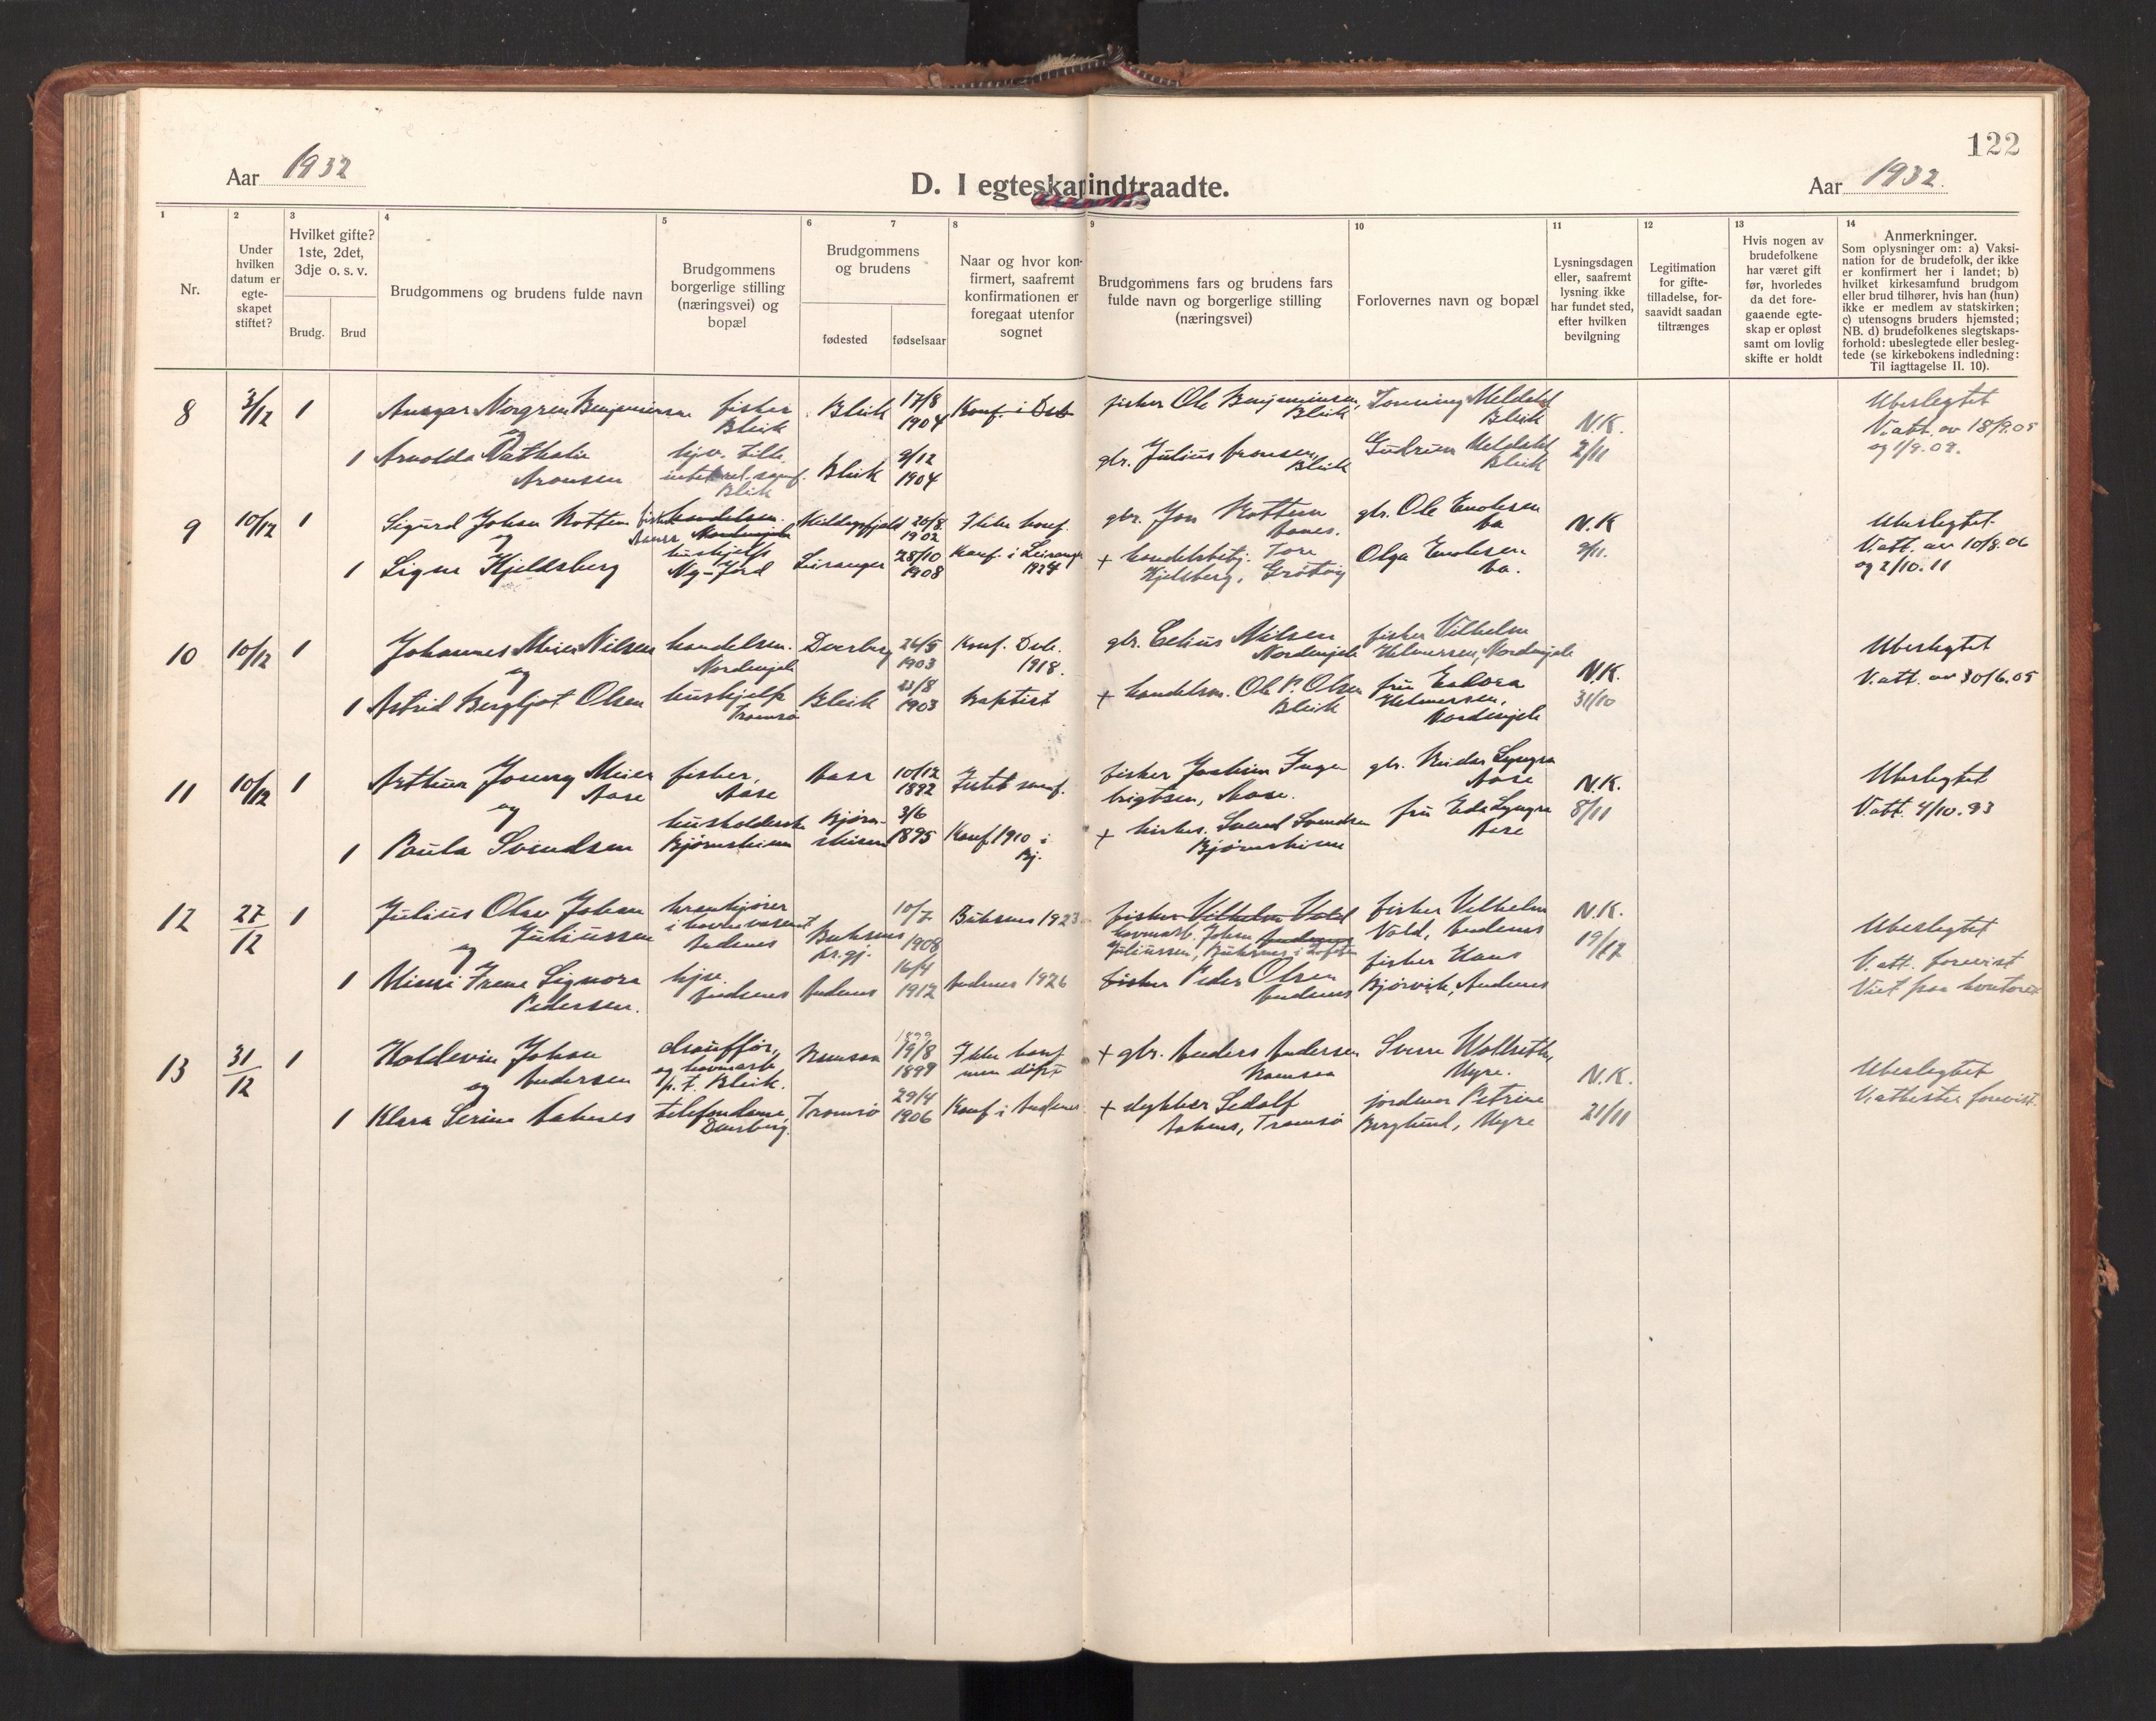 122
Aar 1932
D. I egteskap indtraadte.
Aar 1932.
1 2 3 4 5 6 7 8 9 10 11 12 13 14
Nr.
Under
hvilken
datum er
egte-
skapet
stiftet?
Hvilket gifte?
1ste, 2det,
3dje o. s. v.
Brudg. Brud
Brudgommens og brudens fulde navn
Brudgommens
borgerlige stilling
(næringsvei) og
bopæl
Brudgommens
og brudens
fødested fødselsaar
Naar og hvor kon-
firmert, saafremt
konfirmationen er
foregaat utenfor
sognet
Brudgommens fars og brudens fars
fulde navn og borgerlige stilling
(næringsvei)
Forlovernes navn og bopæl
Lysningsdagen
eller, saafremt
lysning ikke
har fundet sted,
efter hvilken
bevilgning
Legitimation
for gifte-
tilladelse, for-
saavidt saadan
tiltrænges
Hvis nogen av
brudefolkene
har været gift
før, hvorledes
da det fore-
gaaende egte-
skap er opløst
samt om lovlig
skifte er holdt
Anmerkninger.
Som oplysninger om: a) Vaksi-
nation for de brudefolk, der ikke
er konfirmert her i landet; b)
hvilket kirkesamfund brudgom
eller brud tilhører, hvis han (hun)
ikke er medlem av statskirken;
c) utensogns bruders hjemsted;
NB. d) brudefolkenes slegtskaps-
forhold: ubeslegtede eller besleg-
tede (se kirkebokens indledning:
Til iagttagelse II. 10).
8 3/12 1 Ansgar Norgren Benjaminsen
og
fisker
Bleik
Bleik 17/8
1904
Konf. i Dvb
fisker Ole Benjaminsen,
Bleik
Meldahl
Bleik
N.K.
2/11
Ubeslegtet
V.att. av 18/9.05
og 1/9.09.
1 Arnolda Nathalie
Aronsen
hjv. tilh.
intet rel. samf.
Bleik
Bleik 9/12
1904
gbr. Julius Aronsen,
Bleik
Gudrun Meldahl
Bleik
9 10/12 1 Sigurd Johan Rottem
og
fisker handelsm.
Aanes Nordmjele
20/8
1902
Ikke konf.
gbr. Jon Rottem
Aanes.
gbr. Ole Enoksen
Aa
N.K
9/11.
Ubeslegtet.
V.att. av 10/8.06
og 2/10.11
1 Signe Kjeldsberg
hushjelp
Ny-Jord
Leiranger 28/10
1908
Konf. i Leiranger
1924
+ handelsbetj. Tore
Kjelsberg, Grötöy
Olga Enoksen
Aa.
10 10/12 1 Johannes Meier Nilsen
og
handelsm.
Nordmjele
Dverberg 26/5
1903
Konf. Dvb.
1918.
gbr. Celius Nilsen
Nordmjele
fisker Vilhelm
Helmersen, Nordmjele
N.K.
31/10
Ubeslegtet
V.att. av 30/6.05
1 Astrid Bergljot Olsen
hushjelp
Tromsø
Bleik 22/8
1903
Baptist
+ handelsm. Ole P. Olsen
Bleik
fru
Helmersen,
Nordmjele
11 10/12 1 Arthur Meier
Aase
og
fisker,
Aase
Aase 10/12
1892
Intet samf.
fisker Joakim Inge
brigtsen, Aase.
gbr. Reidar Lyngra
Aase
N.K.
8/11
Ubeslegtet
V.att. 4/10.93
1 Paula Svendsen
husholderske
Bjørnskinn
Bjørn-
skinn
3/6
1895
Konf. 1910 i
Bj.
+ kirkes. Svend Svendsen
Bjørnskinn
fru Eda Lyngra
Aase
12 27/12 1 Julius Olav Johan
Juliussen
og
krankjører
i havnevæsenet
Andenes
Buksnes
pr.gj.
10/7
1908
Buksnes 1923
fisker Vilhelm Vold
havnearb. Johan Andenes
Juliussen, Buksnes i Lofoten
fisker Vilhelm
Vold, Andenes
N.K.
19/12
Ubeslegtet
V.att. forevist
Viet paa kontoret
1 Mimi Irene Signora
Pedersen.
hjv.
Andenes
Andenes 16/4
1912
Andenes 1926
fisker Peder Olsen
Andenes
fisker Hans
Bjørvik, Andenes
13 31/12 1 Holdevin Johan
Andersen
og
chauffør,
og havnearb.
p.t. Bleik.
Ramsaa 1899
19/8
1899
Ikke konf
men döpt
+ gbr. Anders Andersen
Ramsaa
Sverre
Myre.
N.K.
21/11
Ubeslegtet
V.attester forevist.
1 Klara Serine Aakenes
telefondame,
Dverberg.
Tromsø 29/4
1906
Konf. i Andenes
+ dykker Sedolf
Aakenes, Tromsø
jordmor Petrine
Berglund, Myre